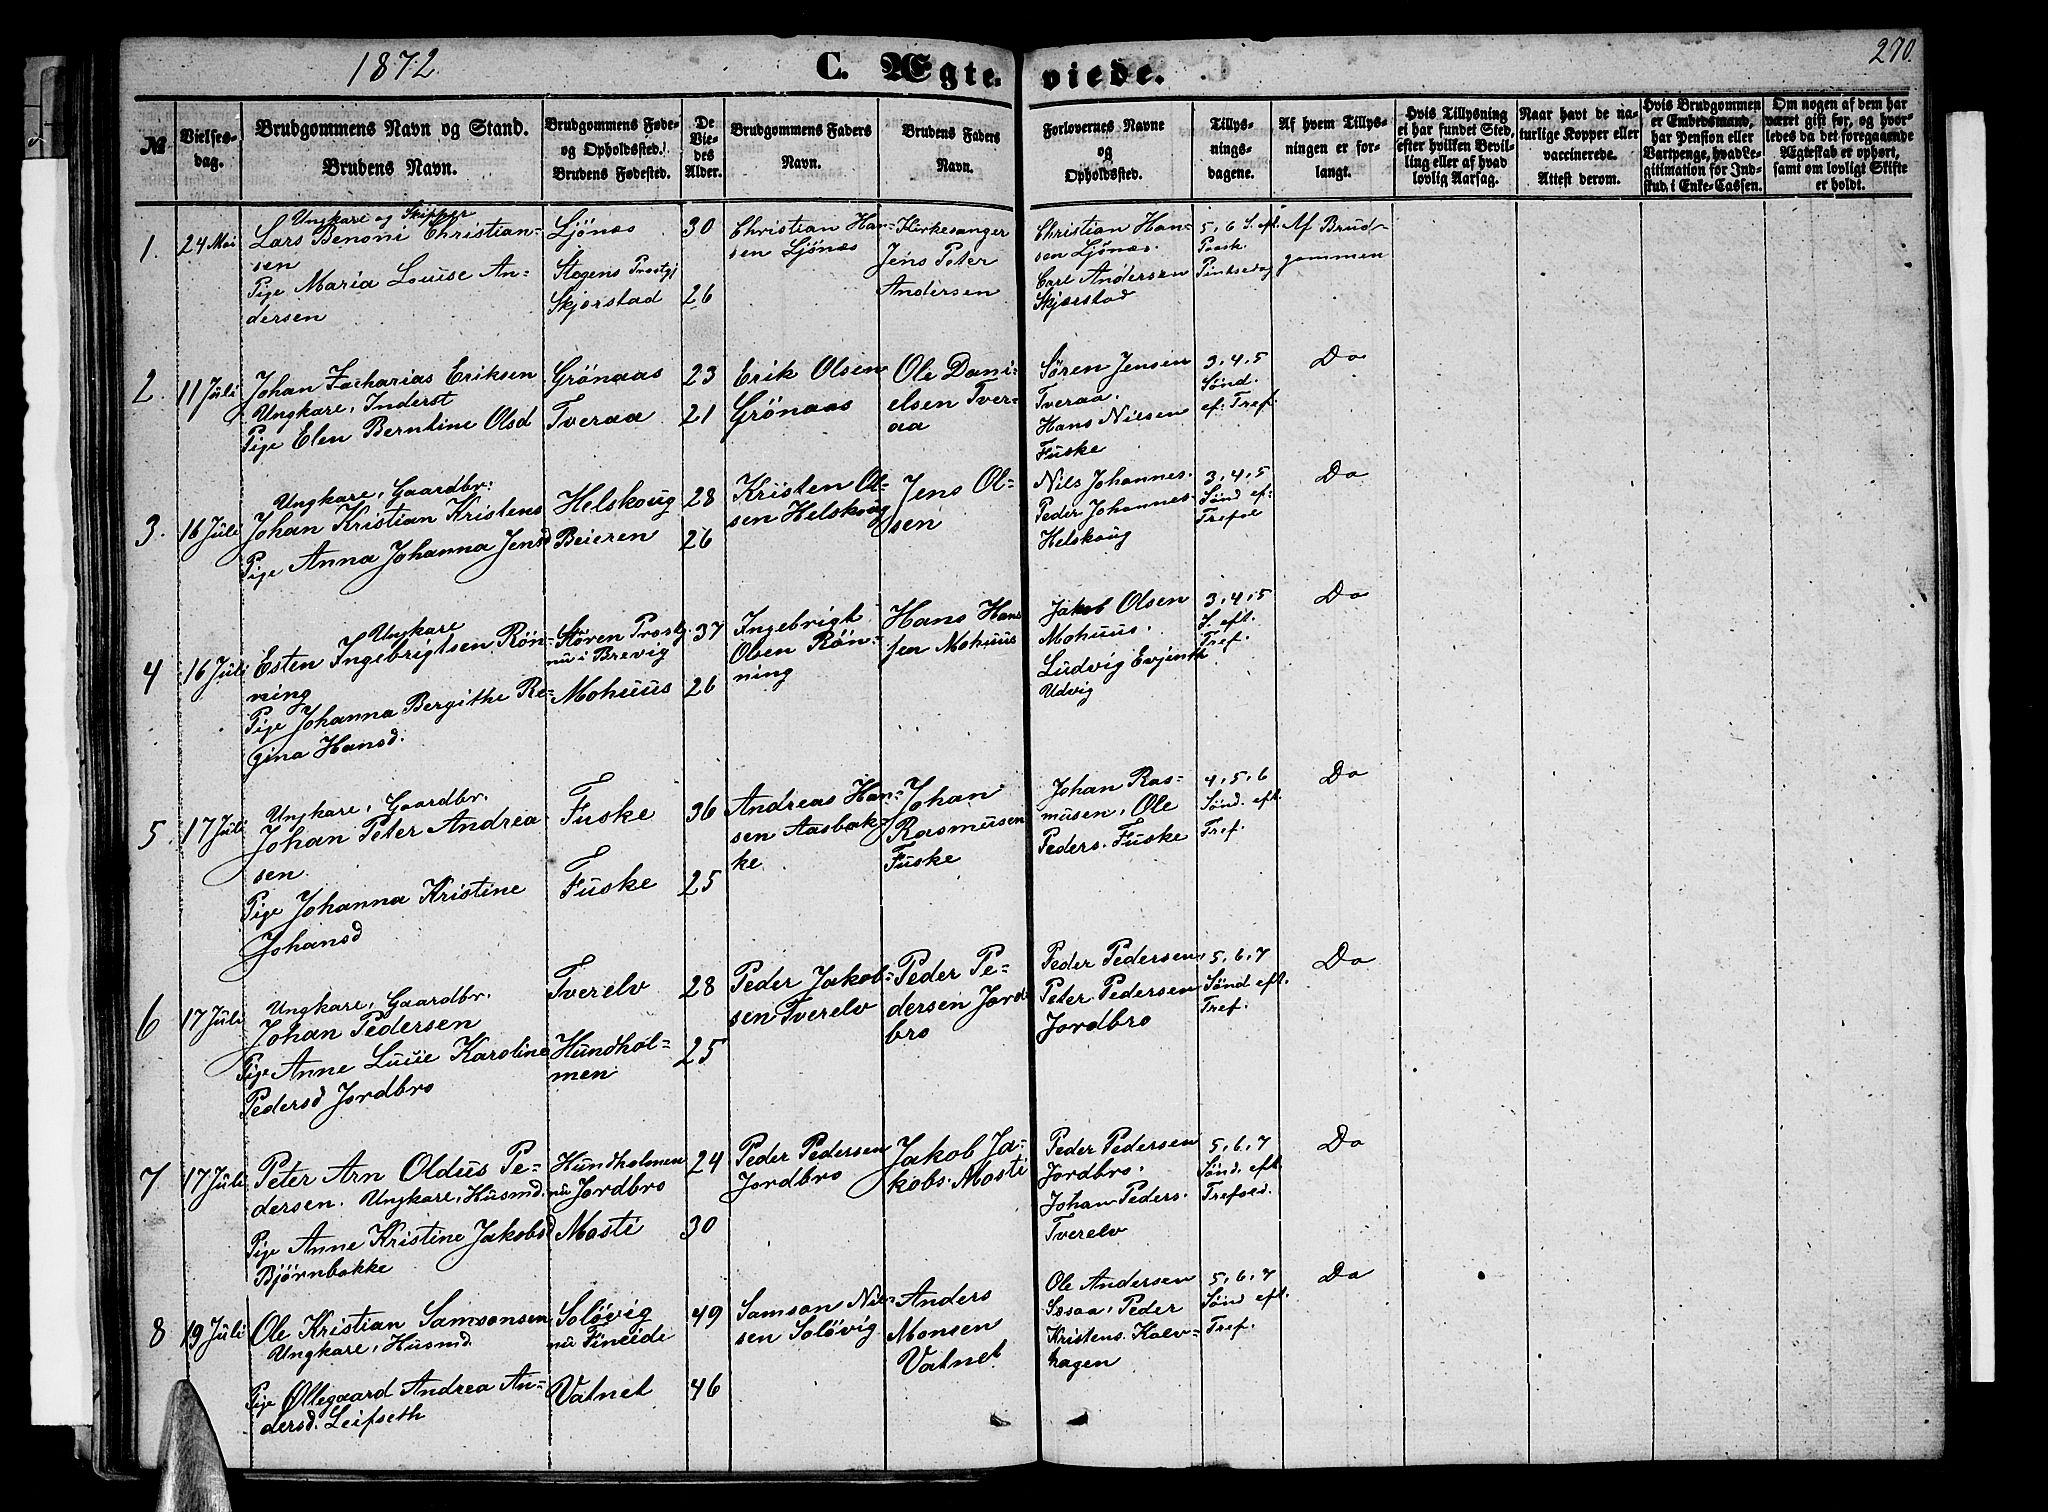 1872
C. Ægte-
viede.
270.
№
Vielses-
dag.
Brudgommens Navn og Stand.
Brudens Navn.
Brudgommens Føde-
og Opholdssted.
Brudens Fødested.
De
Vie-
des
Alder.
Brudgommens Faders
Navn.
Brudens Faders
Navn.
Forlovernes Navne
og
Opholdssted.
Tillys-
nings-
dagene.
Af hvem Tillys-
ningen er for-
langt.
Hvis Tillysning
ei har fundet Sted,
efter hvilken Bevil-
ling eller af hvad
lovlig Aarsag.
Naar havt de na-
turlige Kopper eller
vaccinerede.
Attest derom.
Hvis Brudgommen
er Embedsmand,
har Pension eller
Vartpenge, hvad Le-
gitimation for Ind-
skud i Enke-Cassen.
Om nogen af dem har
været gift før, og hvor-
ledes da det foregaaende
Ægteskab er ophørt,
samt om lovligt Skifte
er holdt.
1.
24 Mai
Ungkare og Skipper
Lars Benoni Christian-
sen
Pige Maria Louise An-
dersen
Ljönæs
Stegens Prestgj
Skjerstad
30
26
Christian Han-
sen Ljönæs
Kirkesanger
Jens Peter
Andersen
Christian Han-
sen Ljönæs.
Carl Andersen
Skjærstad
5, 6 S. eft.
Paask.
Pintsedag
Af Brud-
gommen
2.
11 Juli
Johan Zacharias Eriksen
Ungkare, Inderst
Pige Elen Berntine Olsd
Grönaas
Tveraa
23
21
Erik Olsen
Grönaas
Ole Dani-
elsen Tver-
aa
Søren Jensen
Tveraa.
Hans Nilsen
Fuske
3, 4, 5
Sønd.
ef. Tref.
Do
3.
16 Juli
Ungkare, Gaardbr.
Johan Kristian Kristens
Pige Anna Johanna Jensd
Helskoug
Beieren
28
26
Kristen Ol-
sen Helskoug
Jens Ol-
sen
Nils Johannes.
Peder Johannes.
Helskoug
3, 4, 5
Sønd ef.
Trefol
Do
4
16 Juli
Ungkare
Esten Ingebrigtsen Rön-
ning
Pige Johanna Bergithe Re-
gina Hansd.
Støren Prostgj.
nu i Brevig
Mohuus
37
26
Ingebrigt
Olsen Rön-
ning
Hans Han
sen Mohuus
Jakob Olsen
Mohuus.
Ludvig Evjenth
Udvig
3, 4, 5
S. eft.
Tref.
Do
5.
17 Juli
Ungkare, Gaardbr.
Johan Peter Andrea
sen.
Pige Johanna Kristine
Johansd
Fuske
Fuske
36
25
Andreas Han-
sen Aasbak-
ke
Johan
Rasmusen
Fuske
Johan Ras-
musen, Ole
Peders. Fuske
4, 5, 6
Sønd. eft.
Tref.
Do
6
17 Juli
Ungkare, Gaardbr.
Johan Pedersen
Pige Anne Luvie Karoline
Pedersd Jordbro
Tverelv
Hundhol-
men
28
25
Peder Jakob-
sen Tverelv
Peder Pe-
dersen Jord
bro
Peder Pedersen,
Peter Pedersen
Jordbro
5, 6, 7
Sønd eft.
Tref.
Do
7
17 Juli
Peter Arn Oldus Pe-
dersen. Ungkare, Husmd.
Pige Anne Kristine Jakobsd
Bjørnbakke
Hundholmen
nu Jordbro
Mosti
24
30
Peder Pedersen
Jordbro
Jakob Ja-
kobs. Mosti
Peder Pedersen
Jordbro.
Johan Peders.
Tverelv
5, 6, 7
Sønd. eft
Trefoed.
Do
8
19 Juli
Ole Kristian Samsonsen
Ungkare, Husmd.
Pige Øllegaard Andrea An-
dersd. Leifseth
Solövig
nu Fineide
Vatnet
49
46
Samson Nil-
sen Solövig
Anders
Monsen
Vatnet
Ole Andersen
Sæsaa, Peder
Kristens. Kalv-
hagen
5, 6, 7
Sønd eft.
Tref.
Do